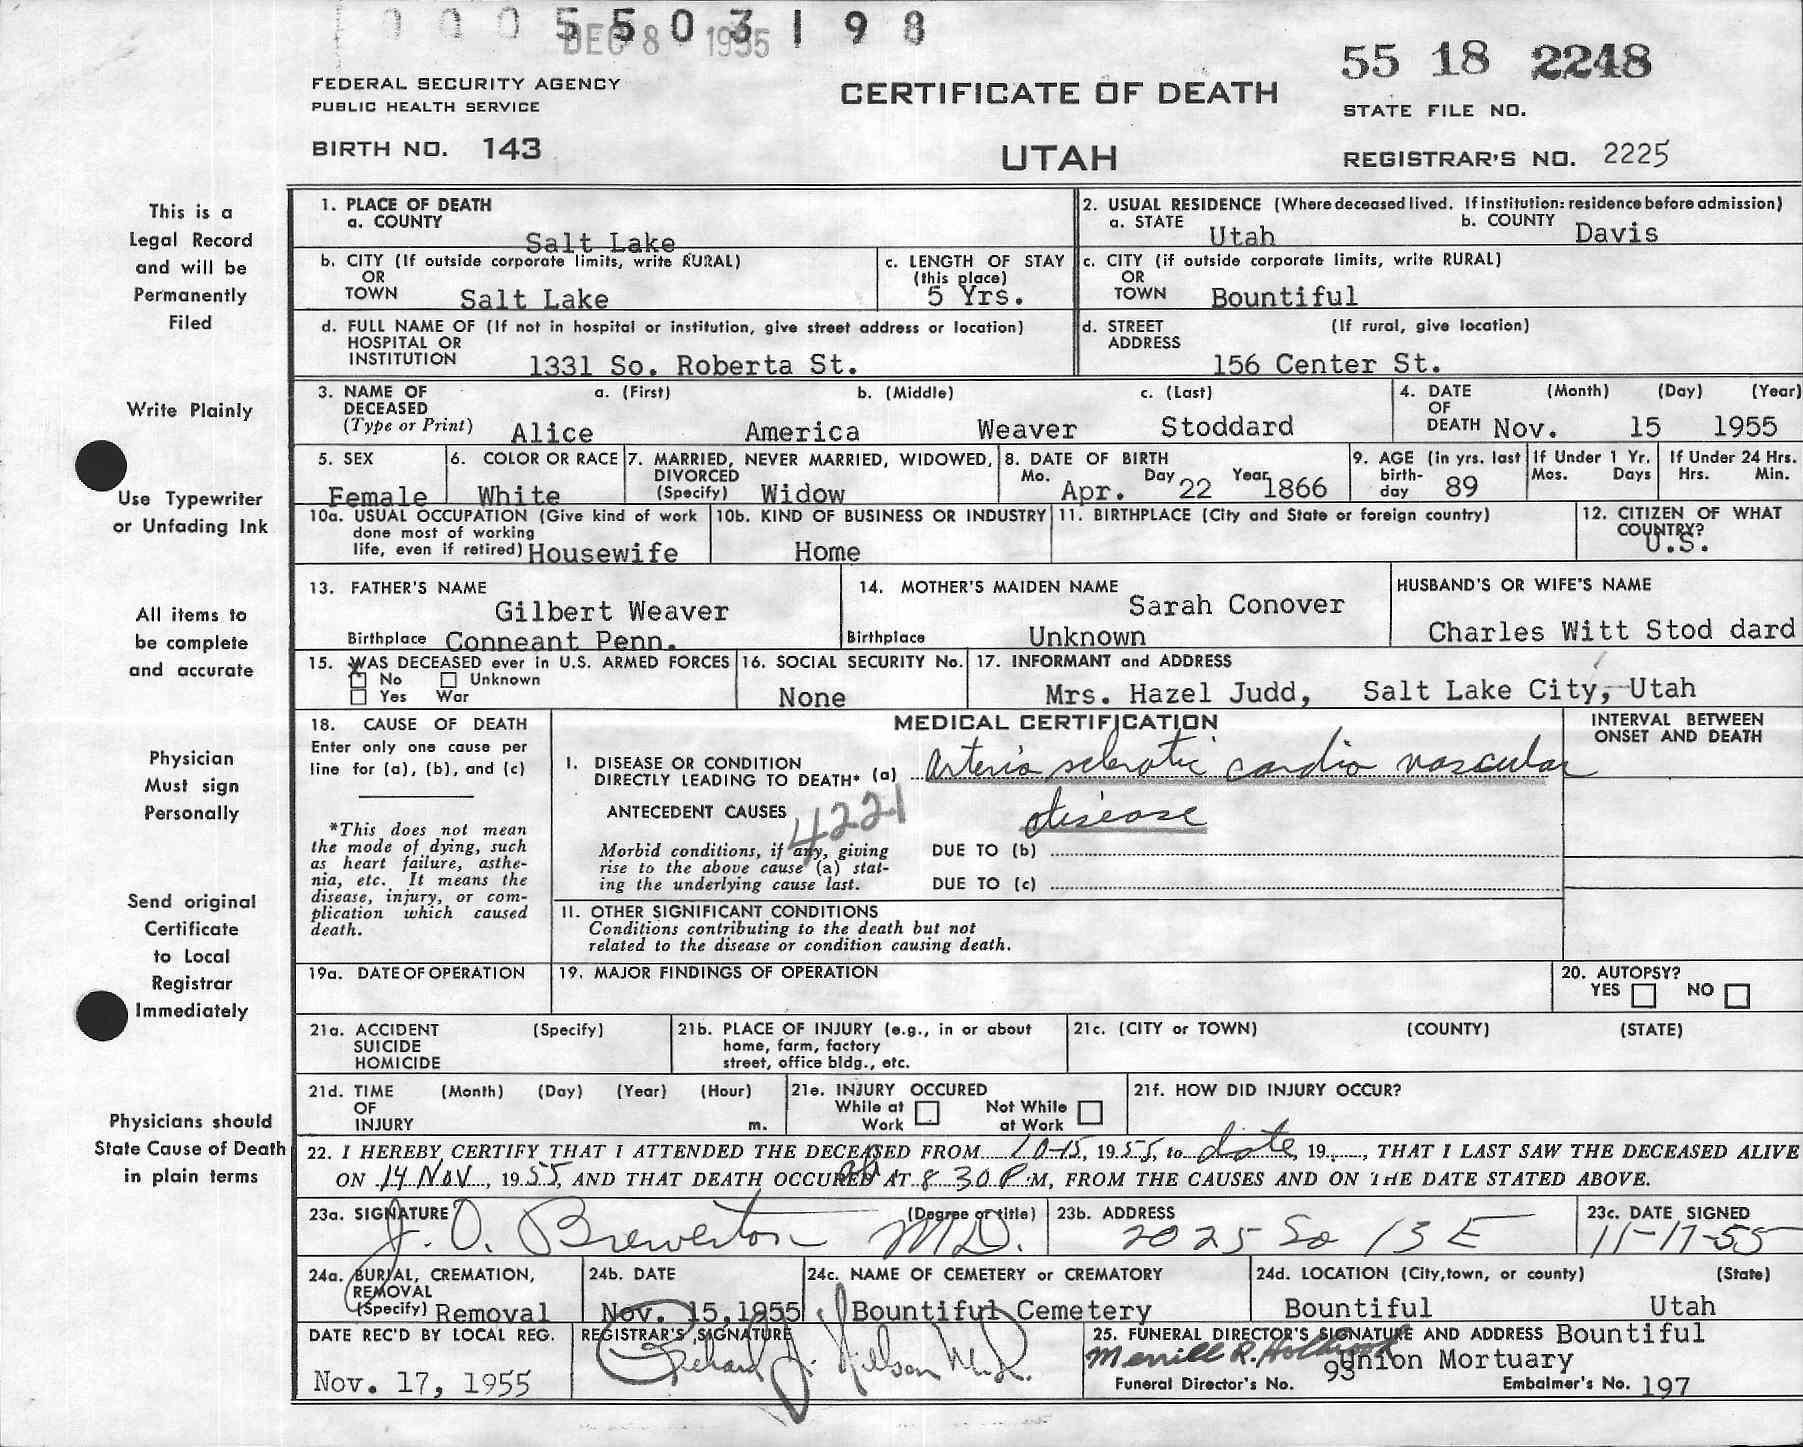 1 0 0 0 5 5 0 3 1 9 8
DEC 8 1955
55 18 2248
FEDERAL SECURITY AGENCY
PUBLIC HEALTH SERVICE
CERTIFICATE OF DEATH
STATE FILE NO.
BIRTH NO. 143
UTAH
REGISTRAR'S NO. 2225
This is a
Legal Record
and will be
Permanently
Filed
Write Plainly
Use Typewriter
or Unfading Ink
All items to
be complete
and accurate
Physician
Must sign
Personally
Send original
Certificate
to Local
Registrar
Immediately
Physicians should
State Cause of Death
in plain terms
1. PLACE OF DEATH
a. COUNTY
Salt Lake
2. USUAL RESIDENCE (Where deceased lived. If institution: residence before admission)
a. STATE Utah b. COUNTY Davis
b. CITY (If outside corporate limits, write RURAL)
OR
TOWN Salt Lake
c. LENGTH OF STAY
(this place)
5 Yrs.
c. CITY (if outside corporate limits, write RURAL)
OR
TOWN Bountiful
d. FULL NAME OF (If not in hospital or institution, give street address or location)
HOSPITAL OR
INSTITUTION 1331 So. Roberta St.
d. STREET (If rural, give location)
ADDRESS
156 Center St.
3. NAME OF a. (First) b. (Middle) c. (Last)
DECEASED
(Type or Print) Alice America Weaver Stoddard
4. DATE (Month) (Day) (Year)
OF
DEATH Nov. 15 1955
5. SEX
Female
6. COLOR OR RACE
White
7. MARRIED, NEVER MARRIED, WIDOWED,
DIVORCED
(Specify) Widow
8. DATE OF BIRTH
Mo. Day Year
Apr. 22 1866
9. AGE (in yrs. last
birth-
day 89
If Under 1 Yr.
Mos. Days
If Under 24 Hrs.
Hrs. Min.
10a. USUAL OCCUPATION (Give kind of work
done most of working
life, even if retired) Housewife
10b. KIND OF BUSINESS OR INDUSTRY
Home
11. BIRTHPLACE (City and State or foreign country)
12. CITIZEN OF WHAT
COUNTRY?
U.S.
13. FATHER'S NAME
Gilbert Weaver
Birthplace Conneant Penn.
14. MOTHER'S MAIDEN NAME
Sarah Conover
Birthplace Unknown
HUSBAND'S OR WIFE'S NAME
Charles Witt Stod dard
15. WAS DECEASED ever in U.S. ARMED FORCES
X No Unknown
Yes War
16. SOCIAL SECURITY No.
None
17. INFORMANT and ADDRESS
Mrs. Hazel Judd, Salt Lake City, Utah
18. CAUSE OF DEATH
Enter only one cause per
line for (a), (b), and (c)
*This does not mean
the mode of dying, such
as heart failure, asthe-
nia, etc. It means the
disease, injury, or com-
plication which caused
death.
MEDICAL CERTIFICATION
INTERVAL BETWEEN
ONSET AND DEATH
I. DISEASE OR CONDITION
DIRECTLY LEADING TO DEATH* (a) Arterio sclerotic cardio vascular
disease
ANTECEDENT CAUSES
4221
Morbid conditions, if any, giving
rise to the above cause (a) stat-
ing the underlying cause last.
DUE TO (b)
DUE TO (c)
II. OTHER SIGNIFICANT CONDITIONS
Conditions contributing to the death but not
related to the disease or condition causing death.
19a. DATE OF OPERATION
19. MAJOR FINDINGS OF OPERATION
20. AUTOPSY?
YES NO
21a. ACCIDENT (Specify)
SUICIDE
HOMICIDE
21b. PLACE OF INJURY (e.g., in or about
home, farm, factory
street, office bldg., etc.
21c. (CITY or TOWN) (COUNTY) (STATE)
21d. TIME (Month) (Day) (Year) (Hour)
OF
INJURY m.
21e. INJURY OCCURED
While at Not While
Work at Work
21f. HOW DID INJURY OCCUR?
22. I HEREBY CERTIFY THAT I ATTENDED THE DECEASED FROM 10-15, 1955, to date, 19...., THAT I LAST SAW THE DECEASED ALIVE
ON 14 Nov, 1955, AND THAT DEATH OCCURED AT 8 30 P M, FROM THE CAUSES AND ON THE DATE STATED ABOVE.
23a. SIGNATURE (Degree or title)
J. O. Brewerton M.D.
23b. ADDRESS
2025 So 13 E
23c. DATE SIGNED
11-17-55
24a. BURIAL, CREMATION,
REMOVAL
(Specify) Removal
24b. DATE
Nov. 15, 1955
24c. NAME OF CEMETERY or CREMATORY
Bountiful Cemetery
24d. LOCATION (City, town, or county) (State)
Bountiful Utah
DATE REC'D BY LOCAL REG.
Nov. 17, 1955
REGISTRAR'S SIGNATURE
Richard J. Nelson M.D.
25. FUNERAL DIRECTOR'S SIGNATURE AND ADDRESS Bountiful
Merrill R. Holbrook Union Mortuary
Funeral Director's No. 93 Embalmer's No. 197